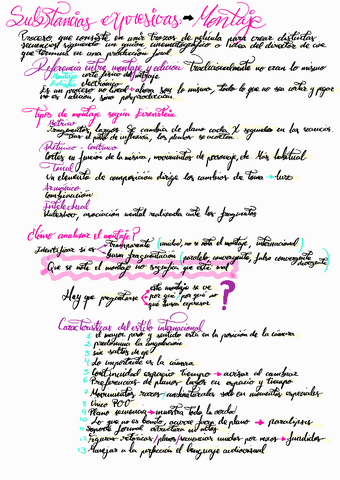 Substancias expresivas → Montaje
Proceso que consiste en unir trozos de película para crear distintas
secuencias siguiendo un guión cinematográfico o idea del director de cine
que terminará en una producción final
Diferencia entre montaje y edición Tradicionalmente no eran lo mismo
Montaje corte físico del fotograma
Edición electrónico
Es un proceso no lineal → ahora son lo mismo, todo lo que no sea cortar y pegar
no es edición, sino postproducción.
Tipos de montaje según Eisenstein
Métrico
Fragmentos largos. Se cambia de plano cada X segundos en las secuencias
Dar el punto de inflexión, los planos se acortan
Rítmico - continuo
Cortes en función de la acción, movimientos de personaje, de Más habitual
Tonal
Un elemento de composición dirige los cambios de tono → luz
Armónico
Combinación
Intelectual
Kuleshov, asociación mental realizada ante los fragmentos
¿Cómo analizar el montaje?
Identificar si es transparente (unidad, no se note el montaje, internacional)
buscar fragmentación (paralelo convergente, falso convergente, divergente)
Que se note el montaje no significa que esté mal
Hay que preguntarse
este montaje se ve
por qué / por qué no
qué busca expresar
?
Características del estilo internacional
1 el mayor peso y sentido está en la posición de la cámara
2 predomina la angulación
3 sin saltos de eje
4 Lo importante es la cámara
5 Continuidad espacio tiempo → avisar al cambiar
6 Preferencias de planos largos en espacio y tiempo
7 Movimientos raros → antinaturales solo en momentos especiales
8 Único POV
9 Plano secuencia → muestra toda la verdad
10 Lo que no es bonito, ocurre fuera de plano → paralipsis
11 Soporte formal estructura viñetas
12 Figuras retóricas / planos / secuencias unidos por nexos → fundidos
13 Manejar a la perfección el lenguaje audiovisual